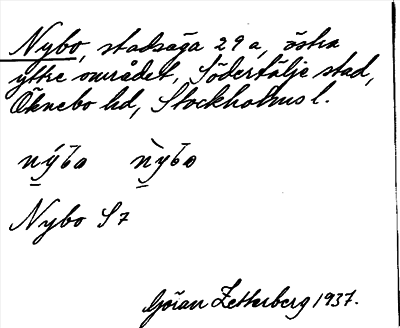 Nybo, stadsäga 29 a, östra
yttre området, Södertälje stad,
Öknebo hd, Stockholms l.
nýbo nỳbo
Nybo S 7
Göran Zetterberg 1937.